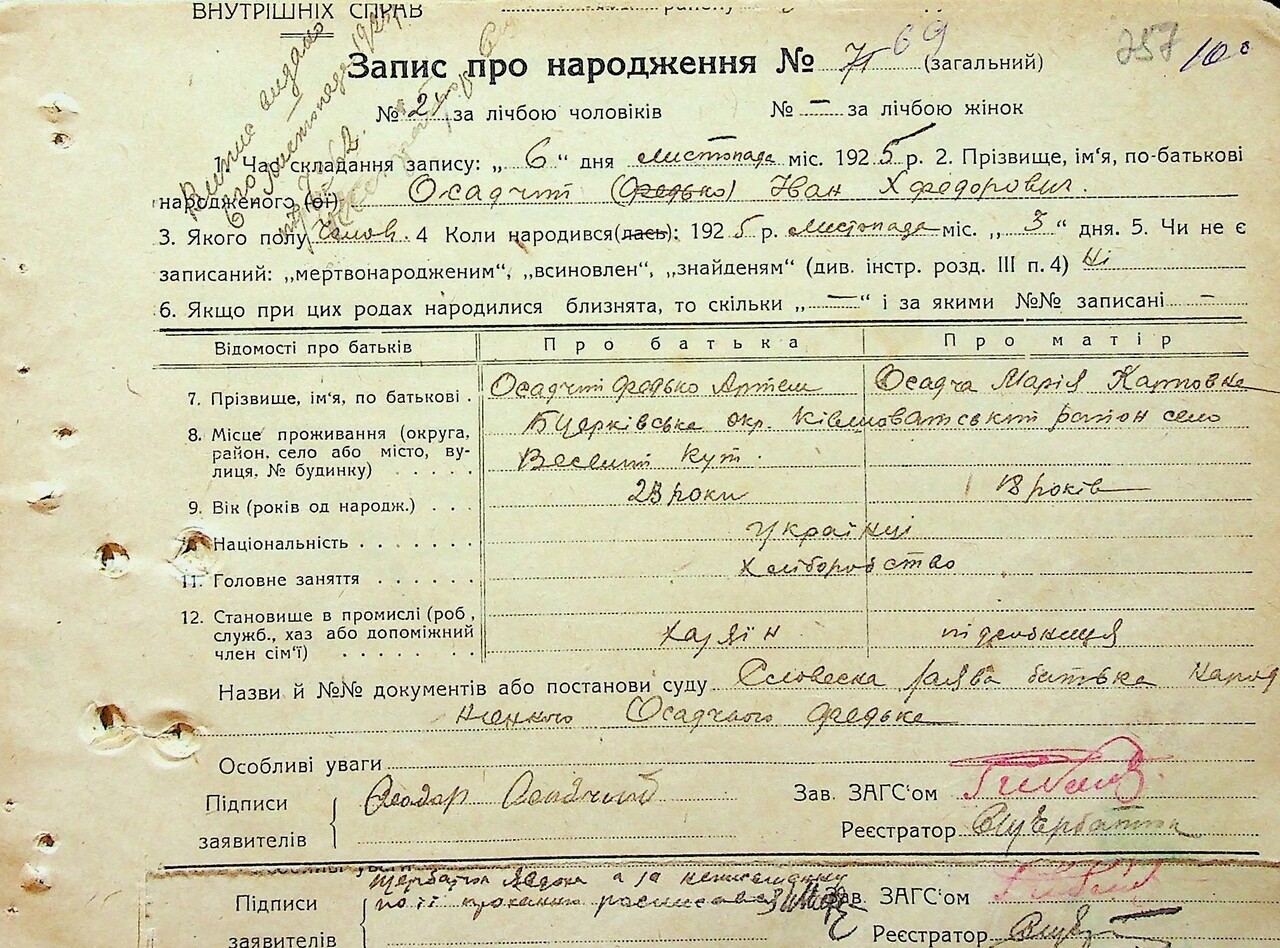 ВНУТРІШНІХ СПРАВ
257 10
Запис про народження № 71 69 (загальний)
№ 21 за лічбою чоловіків № — за лічбою жінок
Витяг видано
6го листопада 192
1. Час складання запису: „ 6 “ дня листопада міс. 1925 р. 2. Прізвище, ім'я, по-батькові
народженого (ої) Осадчий (Федько) Іван Хфедорович.
3. Якого полу Чолов. 4 Коли народився(лась): 1925 р. листопада міс. „ 3 “ дня. 5. Чи не є
записаний: „мертвонародженим“, „всиновлен“, „знайденям“ (див. інстр. розд. III п. 4) Ні
6. Якщо при цих родах народилися близнята, то скільки „ — “ і за якими №№ записані —
Відомості про батьків Про батька Про матір
7. Прізвище, ім'я, по батькові . Осадчий Федько Артем Осадча Марія Карповна
8. Місце проживання (округа, Бцерківська окр. Ківшоватський район село
район, село або місто, ву- Веселий Кут.
лиця, № будинку)
9. Вік (років од народж.) . . . 23 роки 18 років
Національність . . . . . . . українці
11. Головне заняття . . . . . . Хліборобство
12. Становище в промислі (роб,
служб., хаз або допоміжний Хазяїн
член сім'ї) . . . . . . .
Назви й №№ документів або постанови суду Словесна заява батька народ
женного Осадчого Федька
Особливі уваги
Підписи Осадчий Зав. ЗАГС'ом
заявителів Реєстратор
Підписи Зав. ЗАГС'ом
заявителів Реєстратор